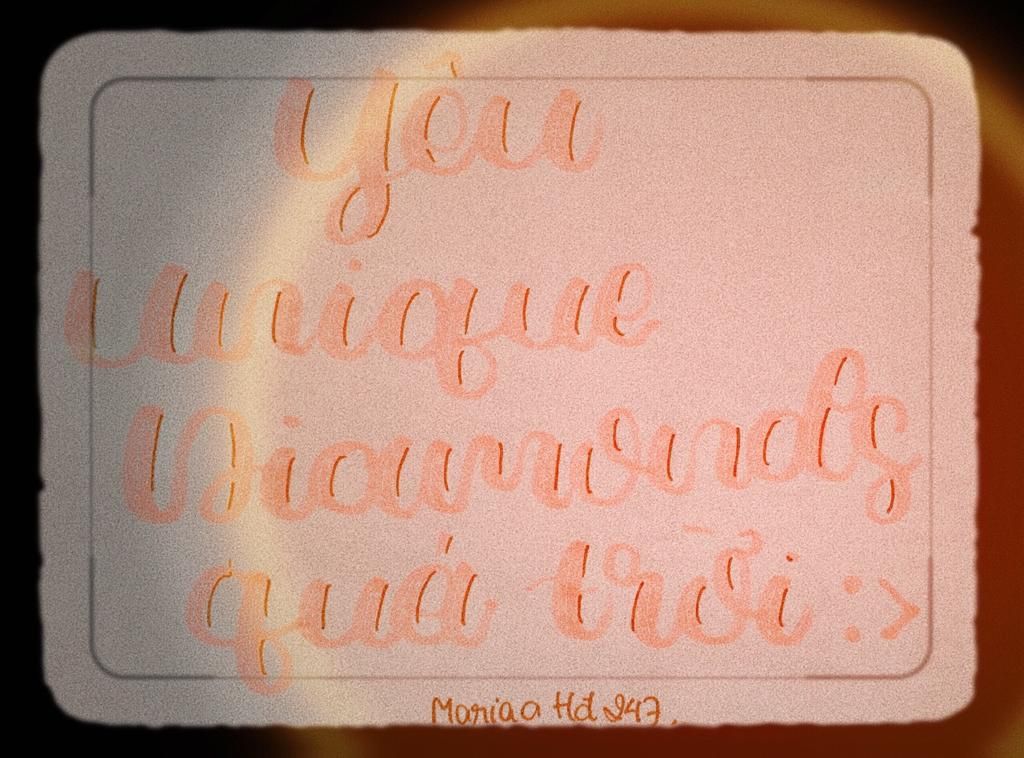 Yêu
Unique
Diamonds
quá trời :>
Mariaa Hd 247.